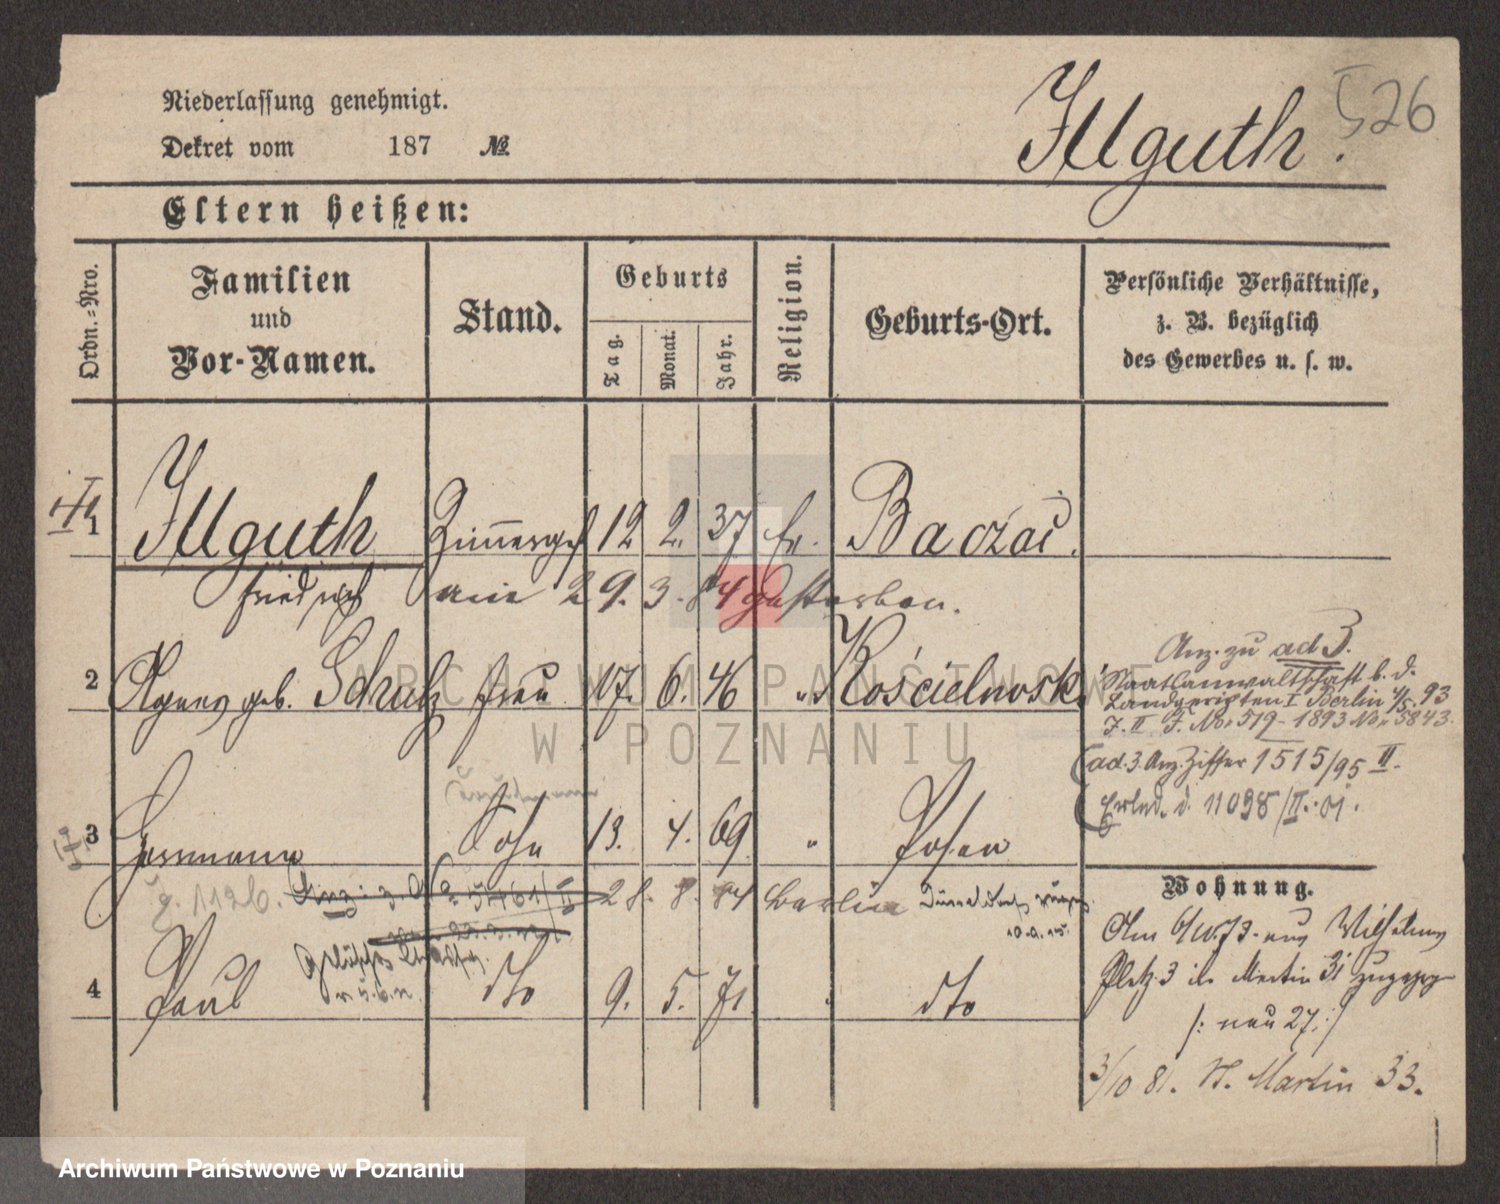 526
Niederlassung genehmigt.
Dekret vom 187 №
Illguth.
Eltern heißen:
Ordn.-Nro.
Familien und Vor-Namen.
Stand.
Geburts
Tag.
Monat.
Jahr.
Religion.
Geburts-Ort.
Persönliche Verhältnisse, z. B. bezüglich des Gewerbes u. s. w.
1 Illguth Zimmerges 12 2. 37 ev. Baczai.
Friedrich am 29. 3. 84 gestorben.
2 Agnes geb. Schulz Frau 17. 6. 46 " Kościelnoski
Anz. zu ad 3.
Staatsanwaltschaft b. d.
Landgerichten I Berlin 4/5. 93
J. II J. No. 519-1893 No. 5843.
ad. 3. Anz. Ziffer 1515/95 II.
Erled. d. 11098/II. 01.
3 Herrmann Sohn 13. 4. 69 " Posen
1126. Anz. z. No. 5461/II 28. 8. 84 Berlin
10.9.15.
4 Paul dto 9. 5. 71 " dto
Wohnung.
Am 6/10. 73 aus Wilhelms
Platz 3 in Martin 31 zugezogen
/: neu 27 :/
3/10 81. St. Martin 33.
ARCHIWUM PAŃSTWOWE
W POZNANIU
Archiwum Państwowe w Poznaniu